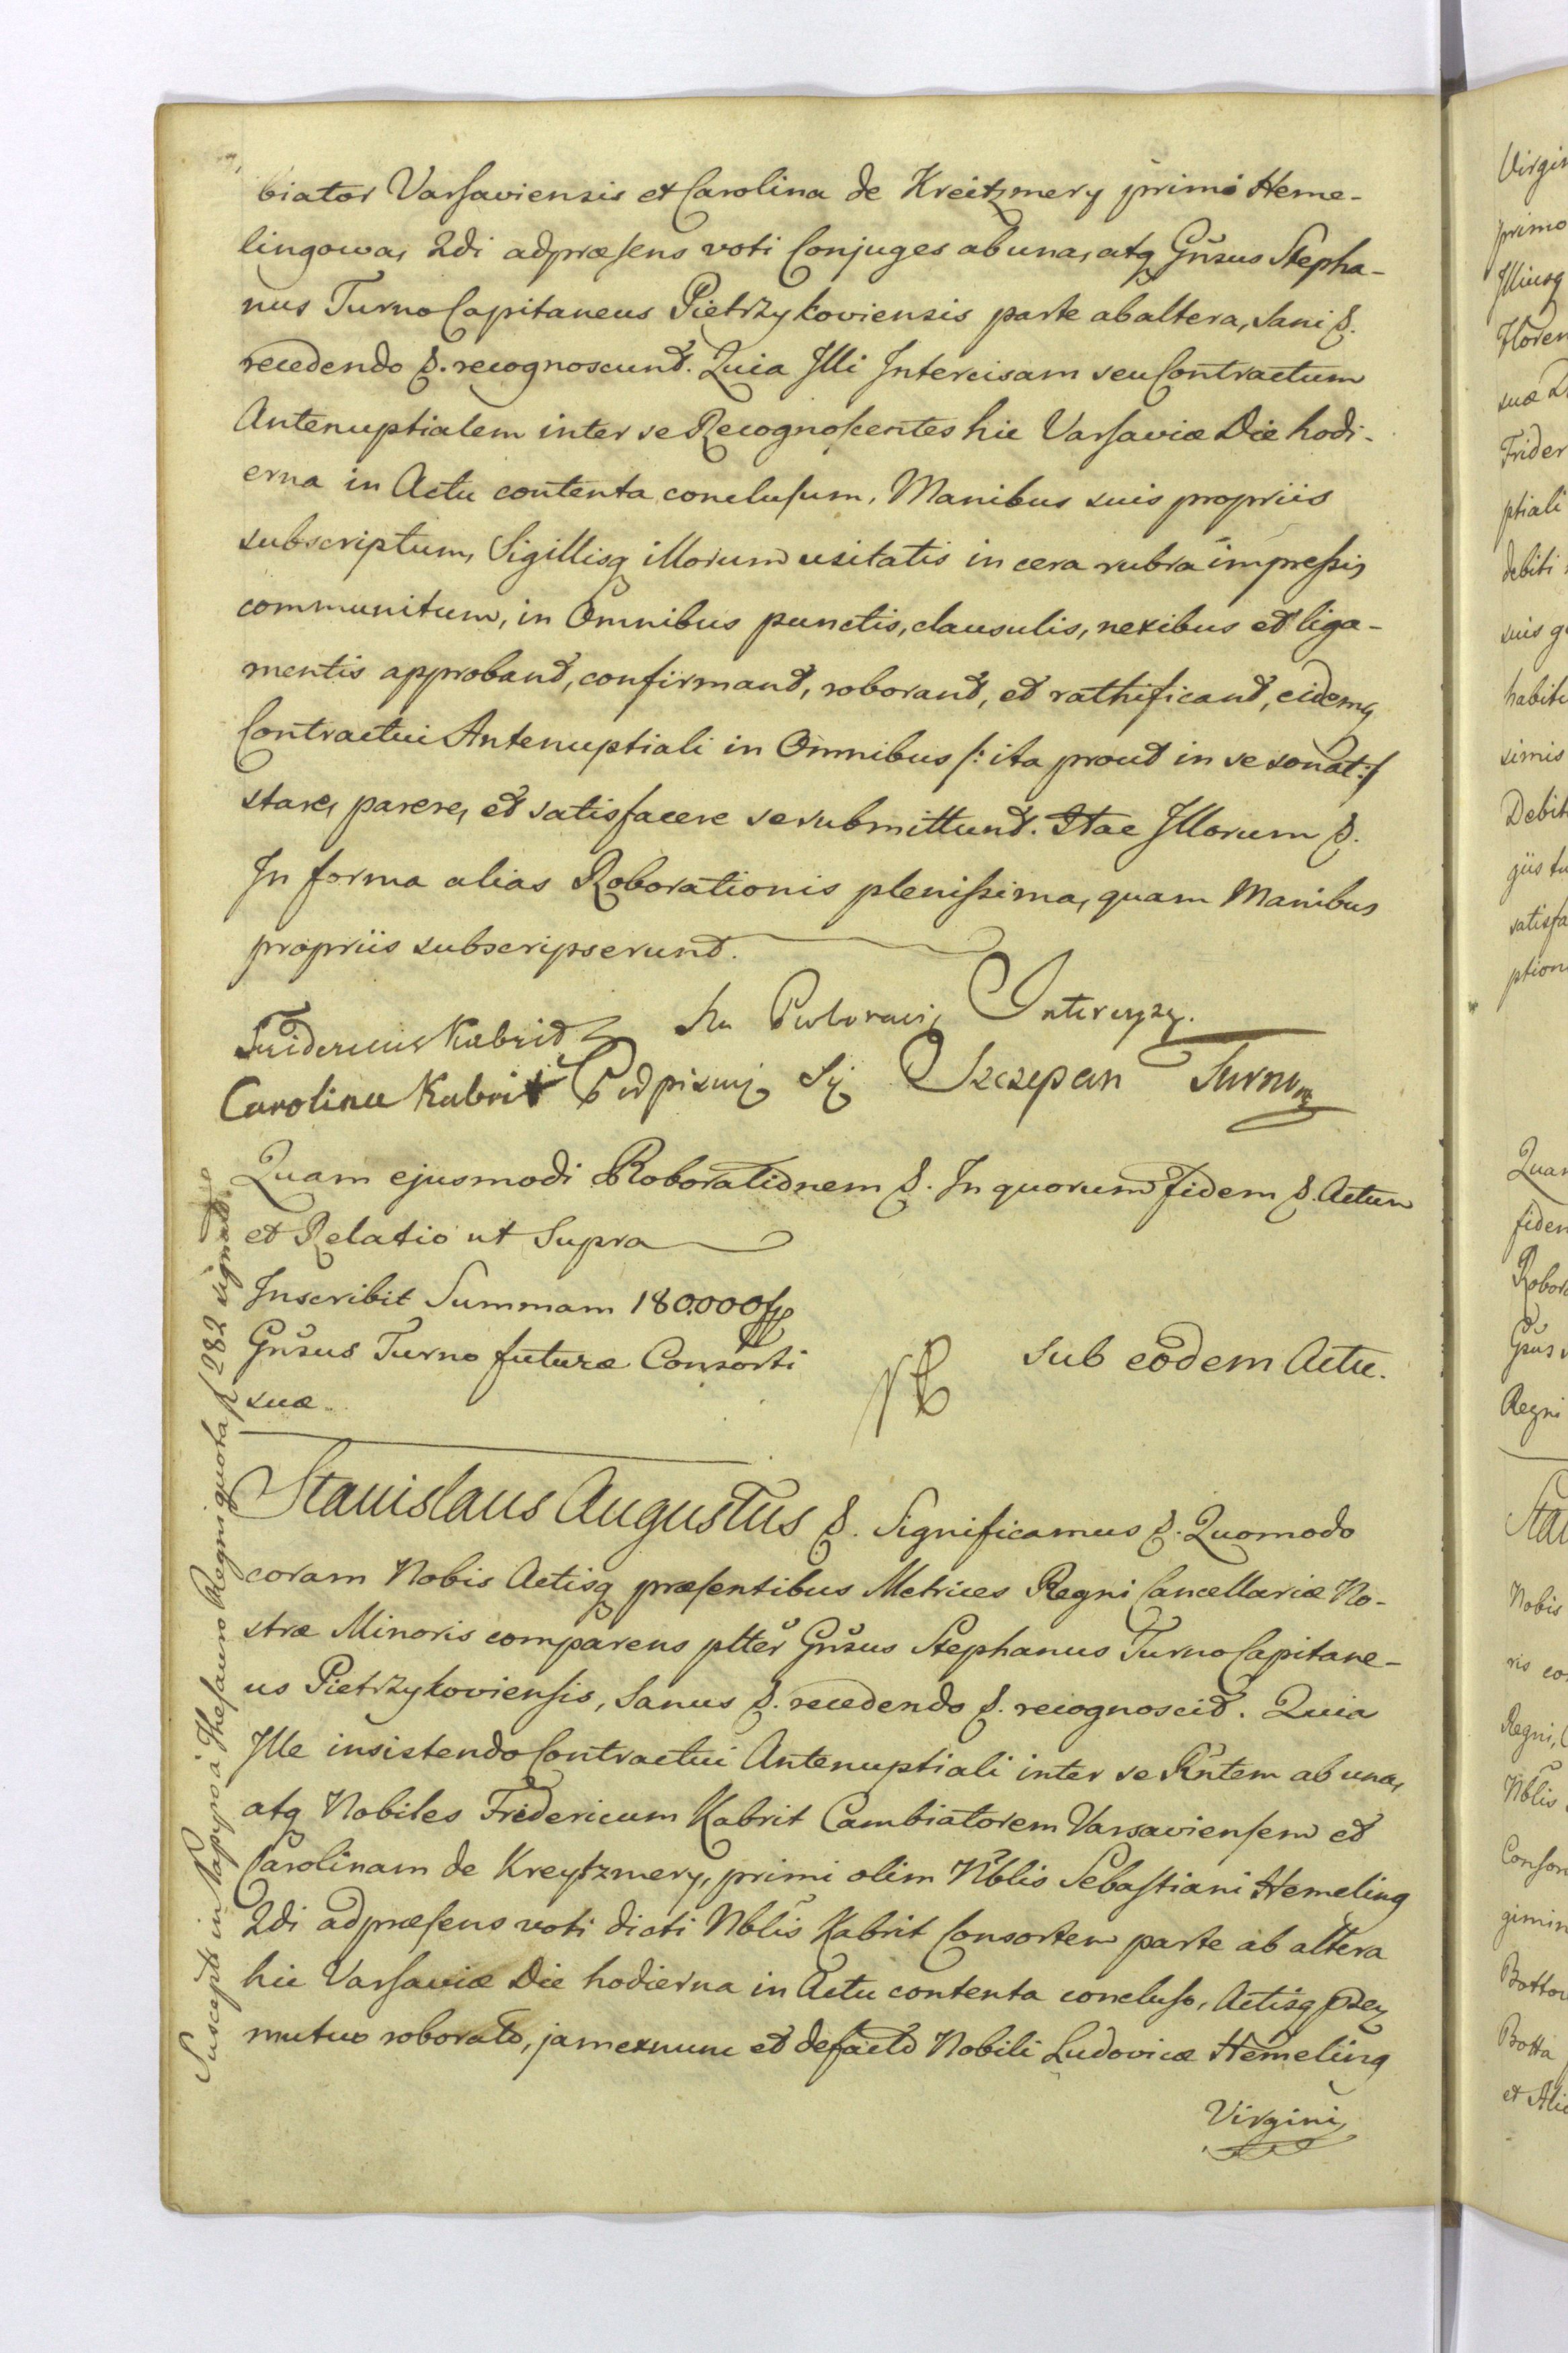 biator Varsaviensis et Carolina de Kreitzmery primi Heme-
lingowa, 2di adpræsens voti Conjuges ab una, atq Gñsus Stepha-
nus Turno Capitaneus Pietrzykoviensis parte ab altera, Sani &.
recedendo &. recognoscunt. Quia Illi Intercisam seu Contractum
Antenuptialem inter se Recognoscentes hic Varsaviæ Die hodi-
erna in Actu contenta conclusum, Manibus suis propriis
subscriptum, Sigillisq illorum usitatis in cera rubra impressis
communitum, in Omnibus punctis, clausulis, nexibus et liga-
mentis approbant, confirmant, roborant, et rathificant, eidemq
Contractui Antenuptiali in Omnibus /: ita prout in se sonat :/
stare, parere, et satisfacere se submittunt. Itae Illorum &.
In forma alias Roborationis plenissima, quam Manibus
propriis subscripserunt.
Fridericus Kabrit
Carolina Kabrit
Intercyzy.
Podpisuię Się Szczepan Turno
Quam ejusmodi Roborationem &. In quorum fidem &. Actum
et Relatio ut Supra
Inscribit Summam 180.000 fp
Gñsus Turno futuræ Consorti
suæ.
Sub eodem Actu.
Stanislaus Augustus &. Significamus &. Quomodo
coram Nobis Actisq præsentibus Metrices Regni Cancellariæ No-
stræ Minoris comparens pltter Gñsus Stephanus Turno Capitane-
us Pietrzykoviensis, Sanus &. recedendo &. recognoscit. Quia
Ille insistendo Contractui Antenuptiali inter se Rñtem ab una,
atq Nobiles Fridericum Kabrit Cambiatorem Varsaviensem et
Carolinam de Kreytzmery, primi olim Nblis Sebastiani Hemeling
2di adpræsens voti dicti Nblis Kabrit Consortem parte ab altera
hic Varsaviæ Die hodierna in Actu contenta concluso, Actisq
mutuo roborato, jam ex nunc et de facto Nobili Ludovicæ Hemeling
Virgini
Suscepta in Papyro à Thesauro Regni quota f 282 signato